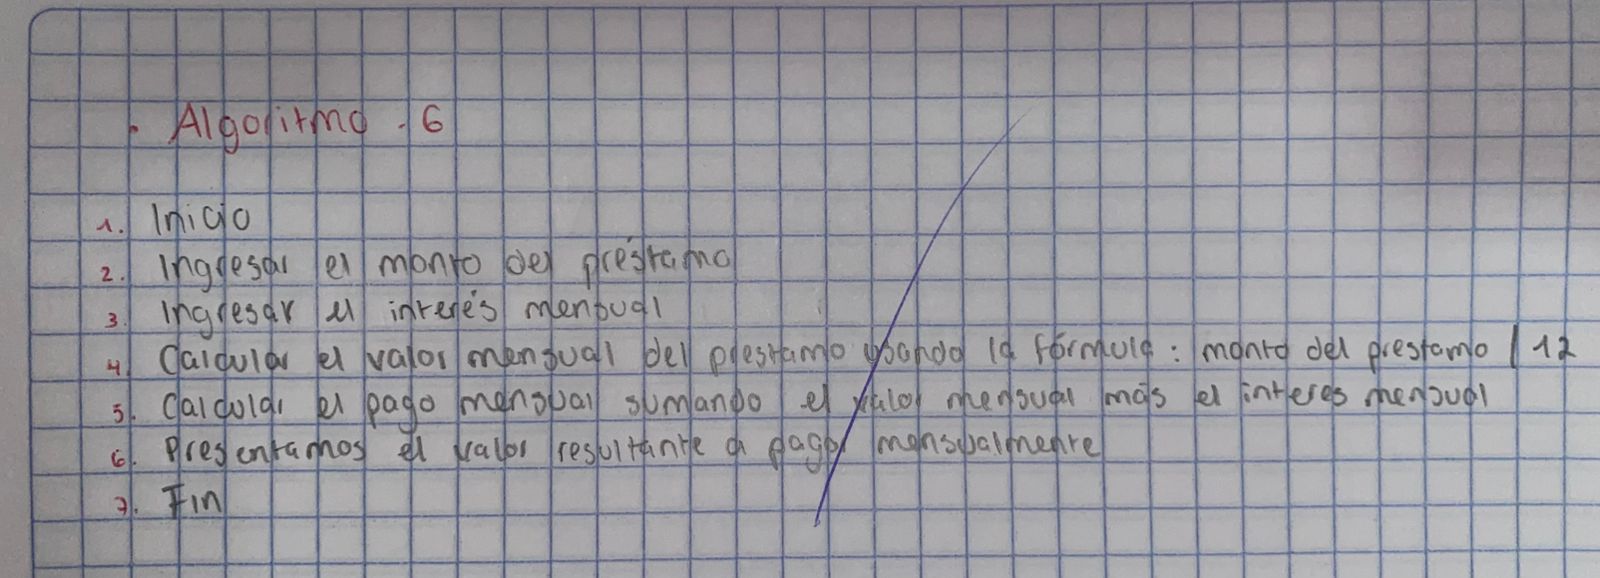 • Algoritmo . 6
1. Inicio
2. Ingresar el monto del préstamo
3. Ingresar el interés mensual
4. Calcular el valor mensual del prestamo usando la fórmula : monto del prestamo / 12
5. Calcular el pago mensual sumando el valor mensual más el interes mensual
6. Presentamos el valor resultante a pagar mensualmente
7. Fin